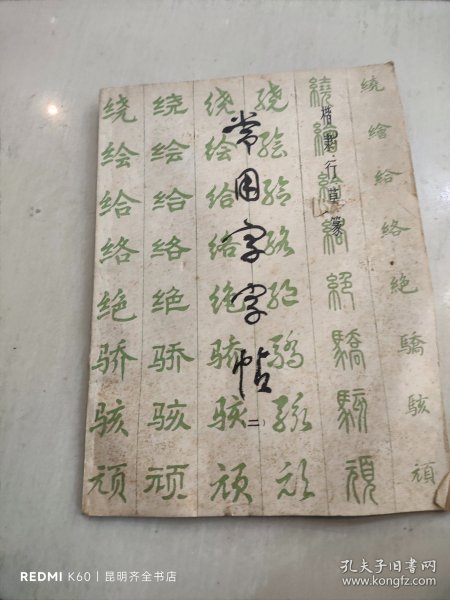 常用字字帖
(二)
楷隶行草篆
绕 绕 绕 绕 繞 繞
绘 绘 绘 绘 繪 繪
给 给 给 给 給 給
络 络 络 络 絡 絡
绝 绝 绝 绝 絕 絕
骄 骄 骄 骄 驕 驕
骇 骇 骇 骇 駭 駭
顽 顽 顽 顽 頑 頑
REDMI K60 | 昆明齐全书店
孔夫子旧书网
www.kongfz.com